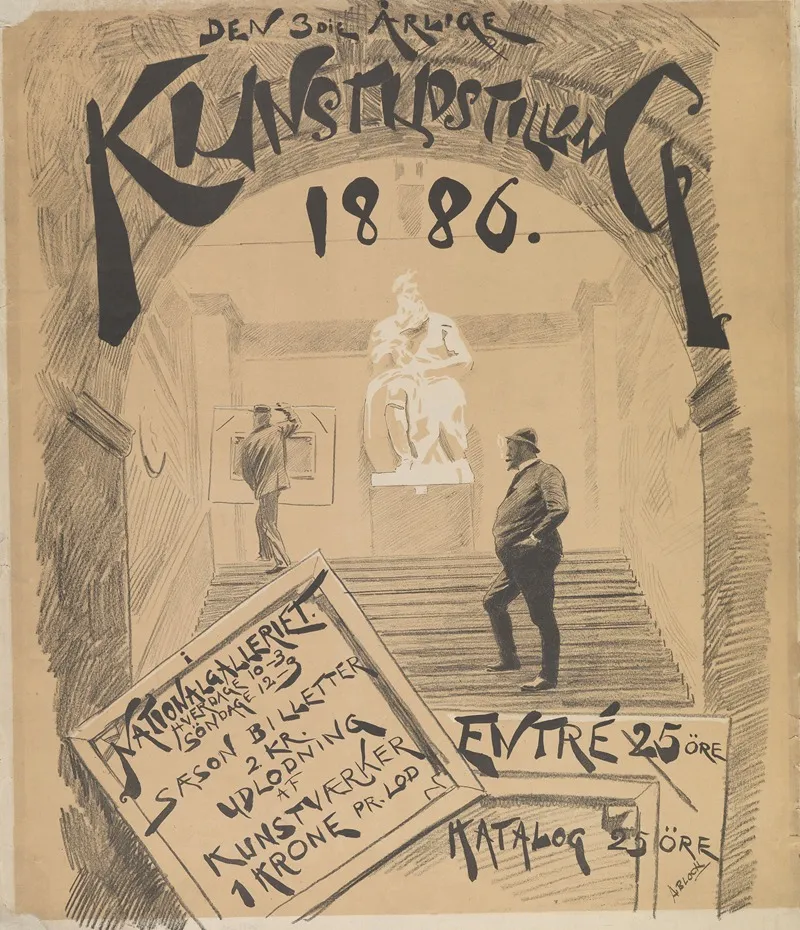 DEN 3DIE ÅRLIGE
KUNSTUDSTILLING
1886.
i
NATIONALGALLERIET.
HVERDAGE 10-3
SÖNDAGE 12-3
SÆSON BILLETTER
2 KR.
UDLODNING
AF
KUNSTVÆRKER
1 KRONE PR. LOD
ENTRÉ 25 ÖRE
KATALOG 25 ÖRE
A. BLOCH